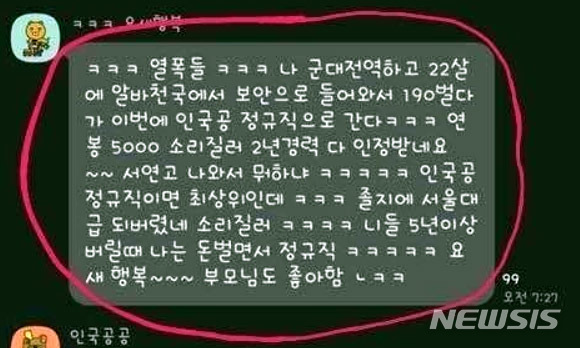 ㅋㅋㅋ 요새행복
ㅋㅋㅋ 열폭들 ㅋㅋㅋ 나 군대전역하고 22살
에 알바천국에서 보안으로 들어와서 190벌다
가 이번에 인국공 정규직으로 간다ㅋㅋㅋ 연
봉 5000 소리질러 2년경력 다 인정받네요
~~ 서연고 나와서 뭐하냐 ㅋㅋㅋㅋㅋ 인국공
정규직이면 최상위인데 ㅋㅋㅋ 졸지에 서울대
급 되버렸네 소리질러 ㅋㅋㅋㅋ 니들 5년이상
버릴때 나는 돈벌면서 정규직 ㅋㅋㅋㅋㅋ 요
새 행복~~~ 부모님도 좋아함 ㄴㅋㅋ
99
오전 7:27
NEWSIS
인국공공